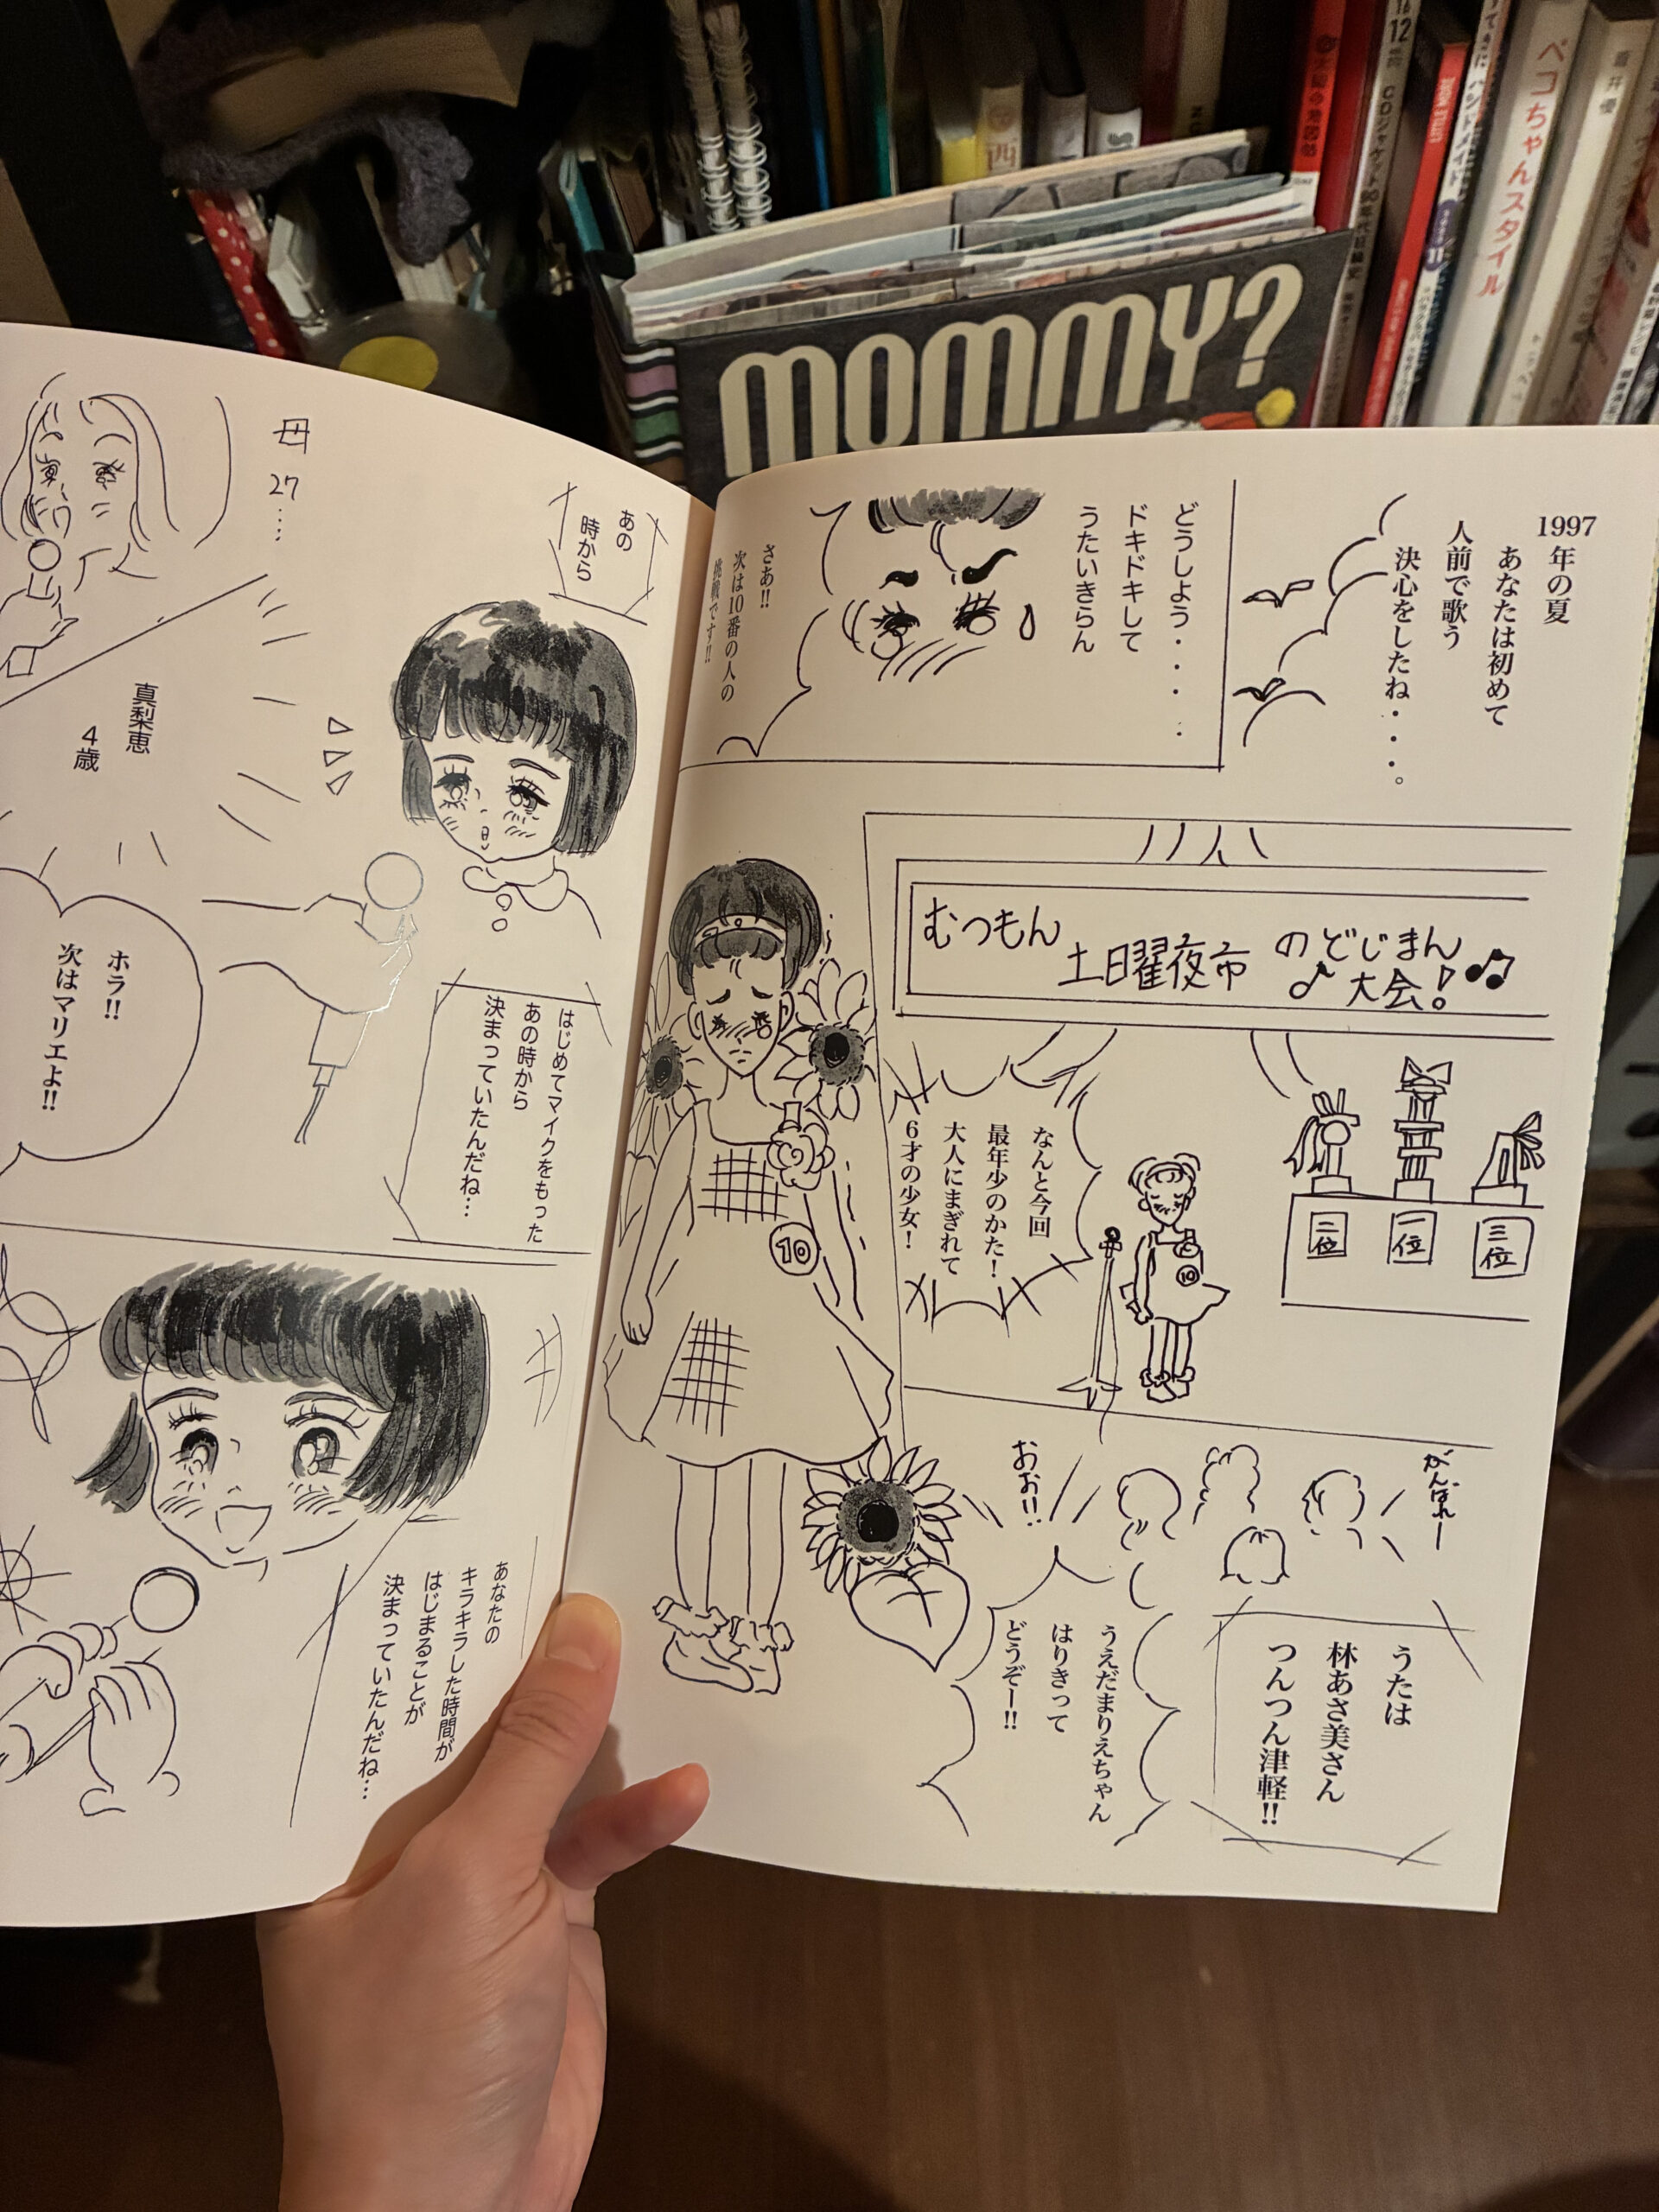 MOMMY?
ペコちゃんスタイル
蒼井優
12
1997年の夏
あなたは初めて
人前で歌う
決心をしたね・・・・。
どうしよう・・・・
ドキドキして
うたいきらん
さあ!!
次は10番の人の
挑戦です!!
むつもん
土曜夜市
のどじまん
大会!
二位
一位
三位
なんと今回
最年少のかた!
大人にまぎれて
6才の少女!
10
10
がんばれー
おお!!
うたは
林あさ美さん
つんつん津軽!!
うえだまりえちゃん
はりきって
どうぞー!!
あの
時から
母
27....
真梨恵
4歳
はじめてマイクをもった
あの時から
決まっていたんだね…
ホラ!!
次はマリエよ!!
あなたの
キラキラした時間が
はじまることが
決まっていたんだね…